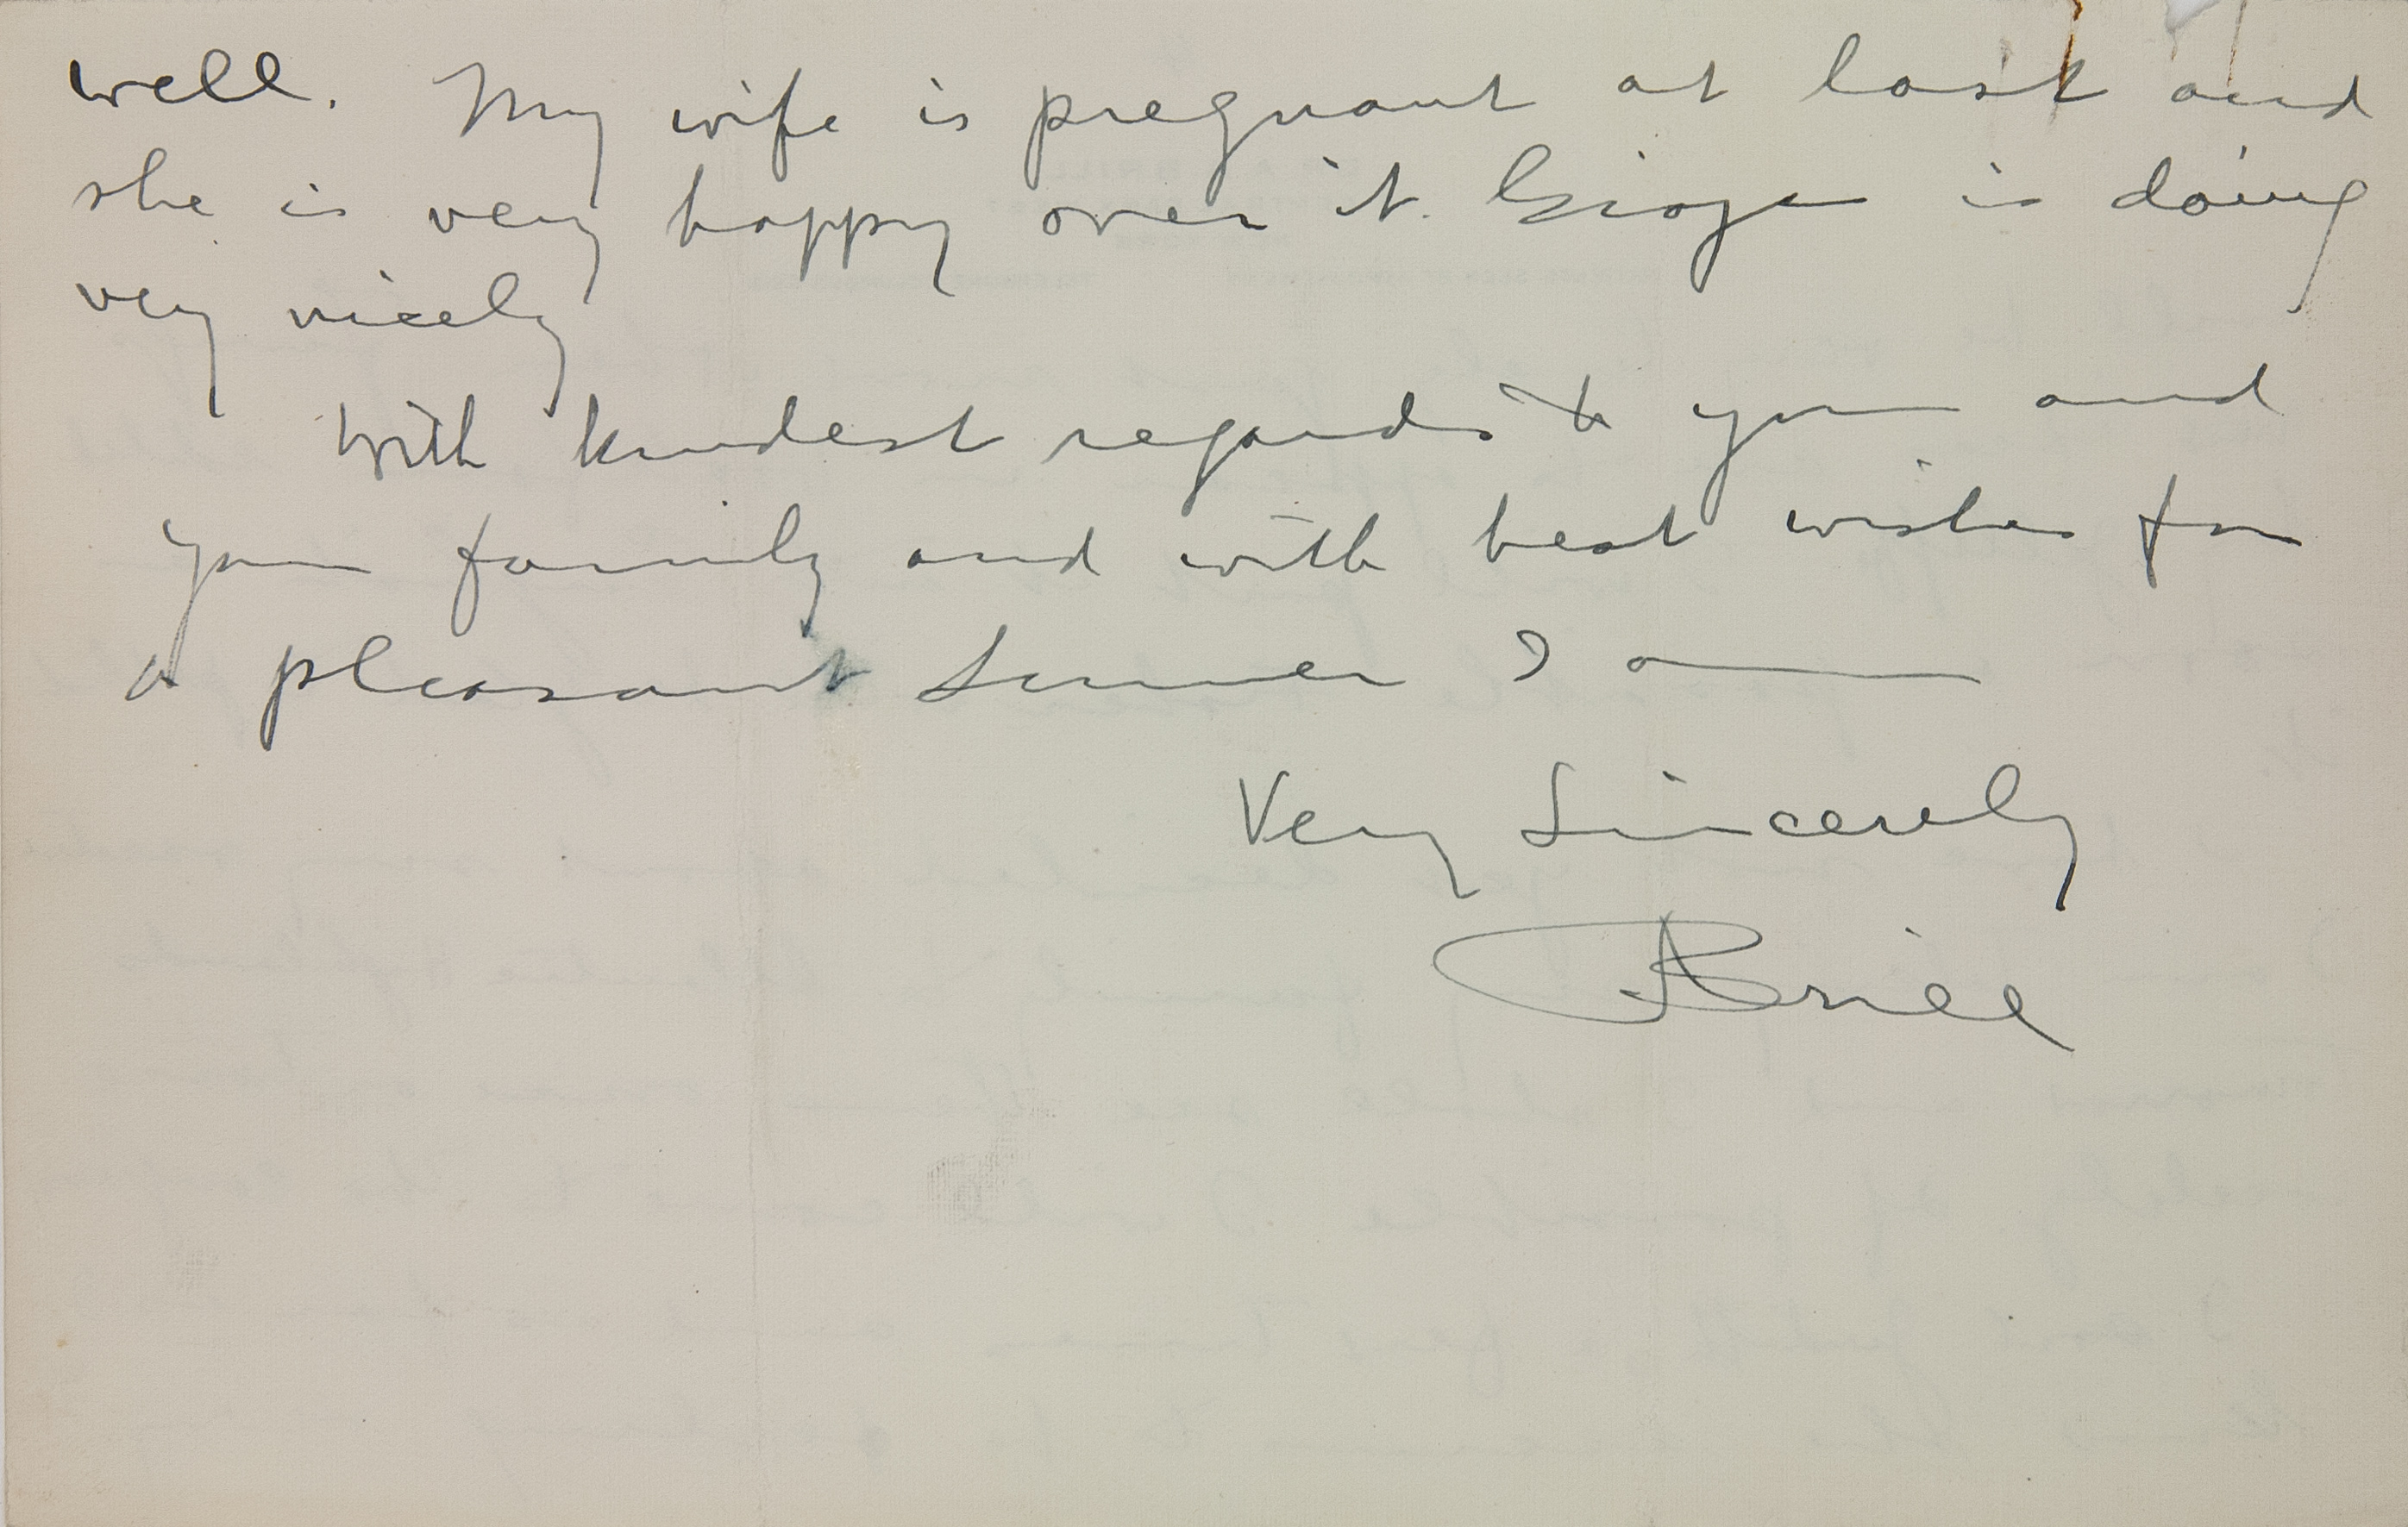 well. My wife is pregnant at last and
she is very happy over it. Gioja is doing
very nicely
With kindest regards to you and
your family and with best wishes for
a pleasant Summer I am
Very Sincerely
ABrill